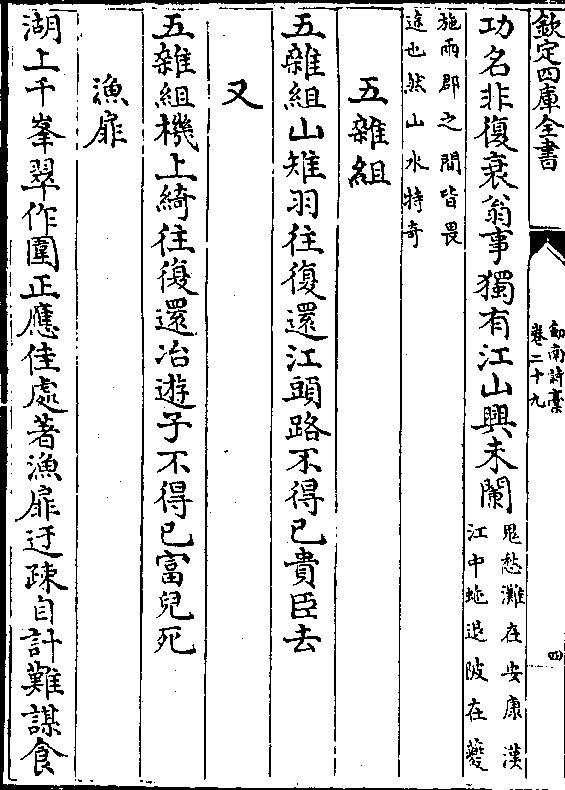 欽定四庫全書
劍南詩藁
卷二十九
四
功名非復衰翁事獨有江山興未闌
鬼愁灘在安康漢
江中虵退陂在夔
施兩郡之間皆畏
途也然山水特奇
五雜組
五雜組山雉羽往復還江頭路不得已貴臣去
又
五雜組機上綺往復還冶遊子不得已富兒死
漁扉
湖上千峯翠作圍正應佳處著漁扉迂疎自計難謀食